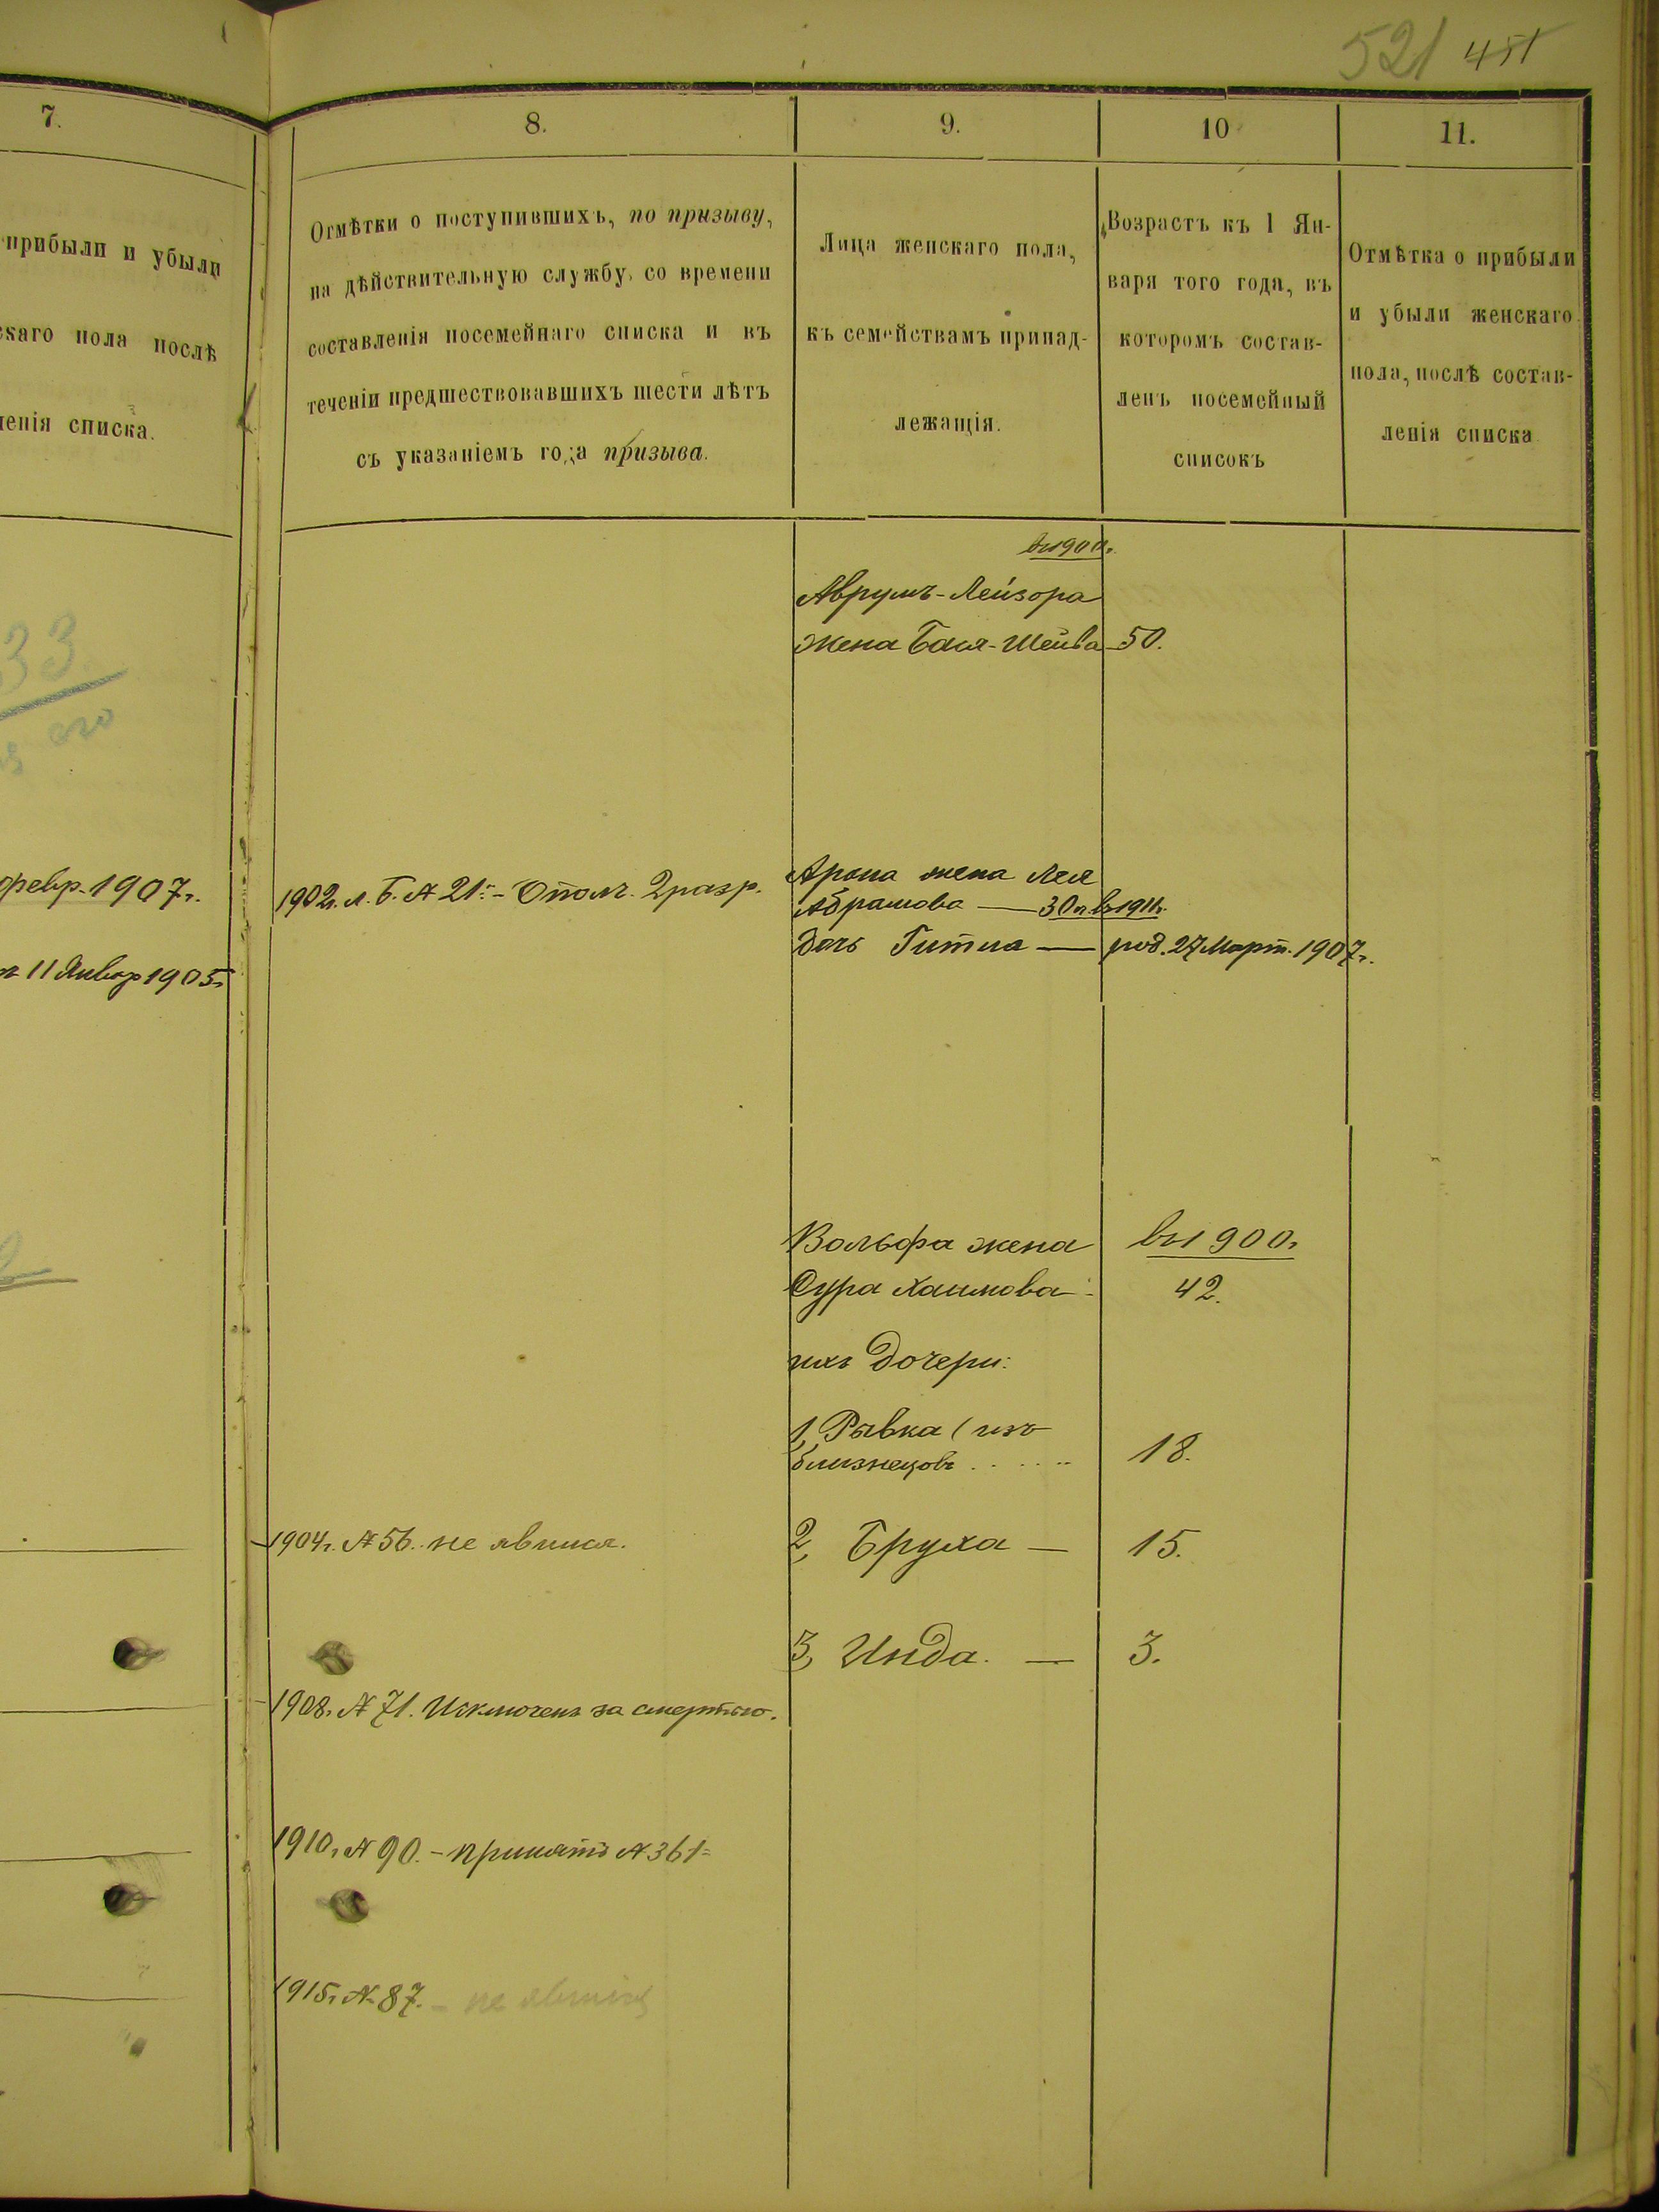 521 451
7.
8.
9.
10
11.
прибыли и убыли
скаго пола послѣ
ленія списка.
Отмѣтки о поступившихъ, по призыву,
на дѣйствительную службу, со времени
составленія посемейнаго списка и въ
теченіи предшествовавшихъ шести лѣтъ
съ указаніемъ года призыва.
Лица женскаго пола,
къ семействамъ принад-
лежащія.
Возрастъ къ 1 Ян-
варя того года, въ
которомъ состав-
ленъ посемейный
списокъ
Отмѣтка о прибыли
и убыли женскаго
пола, послѣ состав-
ленія списка
въ 1900г.
Аврумъ-Лейзора
жена Бася-Шейва 50.
33.
его
февр. 1907г.
1902г. л. Б. № 21: - Ополч. 2 разр.
Арона жена Лея
Абрамова — 30 л. въ 1911г.
Дочь Гитла — род. 27 Март. 1907г.
11 Январ 1905г
Вольфа жена въ 1900г.
Сура Хаимова - 42.
ихъ дочери:
1, Рывка (изъ
близнецовъ . . . . . 18.
1904г. № 56. не явился.
2, Бруха — 15.
3, Инда. — 3.
1908г. № 71. Исключенъ за смертью.
1910г. № 90. - принятъ № 361=
1915г. № 87. - не явился